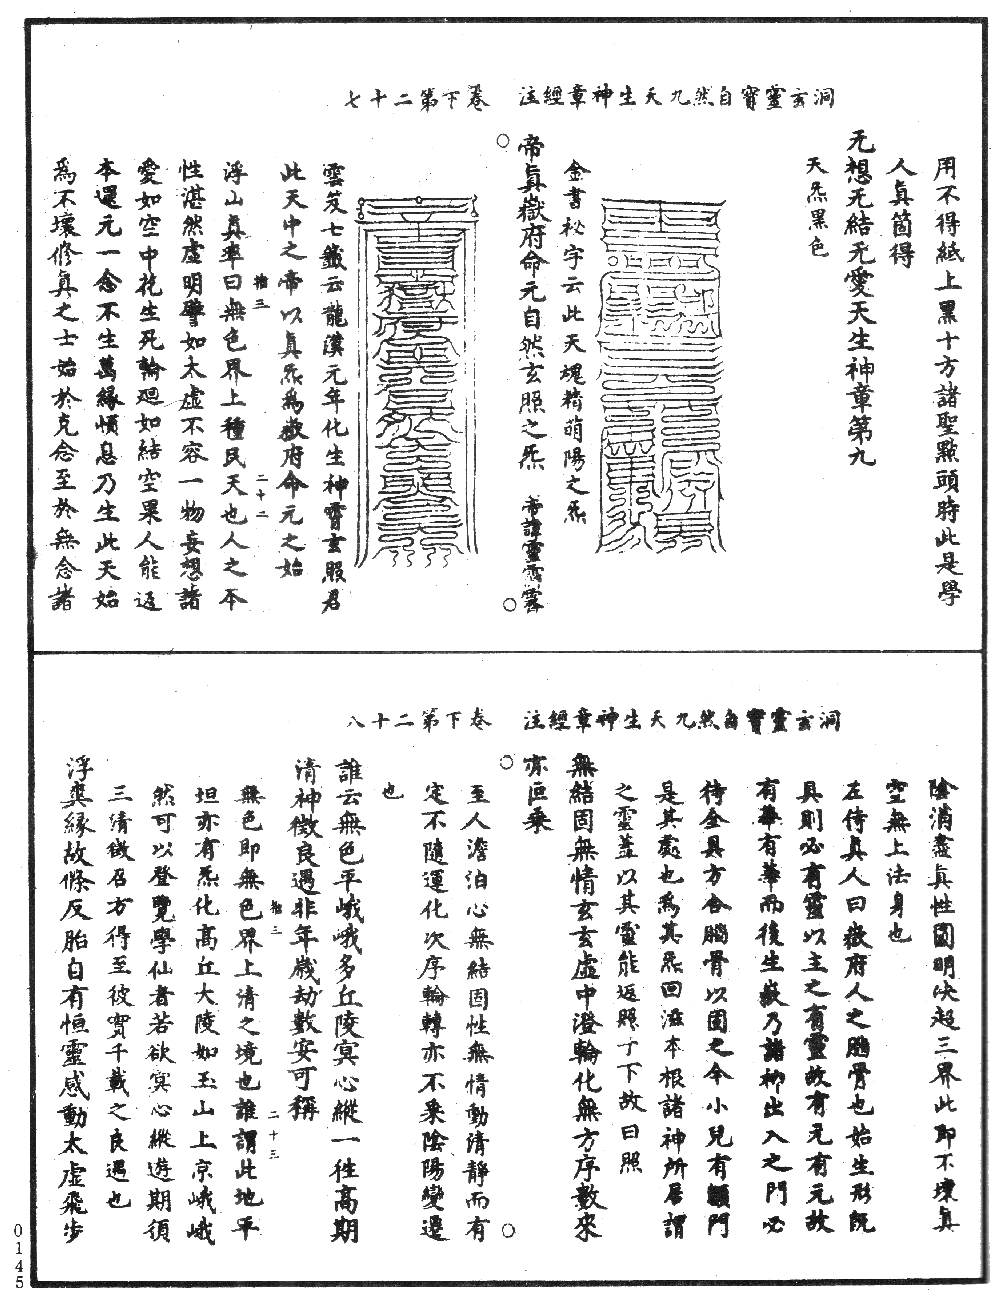 洞玄靈寳自然九天生神章經註　卷下第二十七
用不得紙上黑十方諸聖㸃頭時此是學
人眞箇得
无想无結无愛天生神章第九
天炁黑色
金書祕字云此天魂精萌陽之炁
帝眞嶽府命元自然玄照之炁
雲笈七籤云龍漢元年化生神霄玄照君
此天中之帝以眞炁爲嶽府命元之始
拾三　二十二
浮山眞率曰無色界上種民天也人之本
性湛然虛明譬如太虛不容一物妄想諸
愛如空中花生死輪廻如結空果人能返
本還元一念不生萬緣憤息乃生此天始
爲不壞修眞之士始於克念至於無念諸
洞玄靈寳自然九天生神章經註　卷下第二十八
陰消盡眞性圓明決超三界此即不壞眞
空無上法身也
左侍眞人曰嶽府人之腦骨也始生形既
具則必有靈以主之有靈故有炁有元故
有華有華而後生嶽乃諸神出入之門必
待全具方合腦骨以固之今小兒有顖門
是其處也爲其炁回滋本根諸神所居謂
之靈蓋以其靈能返照于下故曰照
無結固無情玄玄虛中澄輪化無方序數來
亦叵乘
至人澹泊心無結固性無情動清靜而有
定不隨運化次序輪轉亦不乘陰陽變遷
也
誰云無色平峨峨多丘陵冥心縱一往高期
清神徵良遇非年歲劫數安可稱
拾三　二十三
無色即無色界上清之境也誰謂此地平
坦亦有炁化高丘大陵如玉山上京峨峨
然可以登覽學仙者若欲冥心縱遊期須
三清徵召方得至彼實千載之良遇也
浮爽緣故條反胎自有恒靈感動太虛飛步
0145